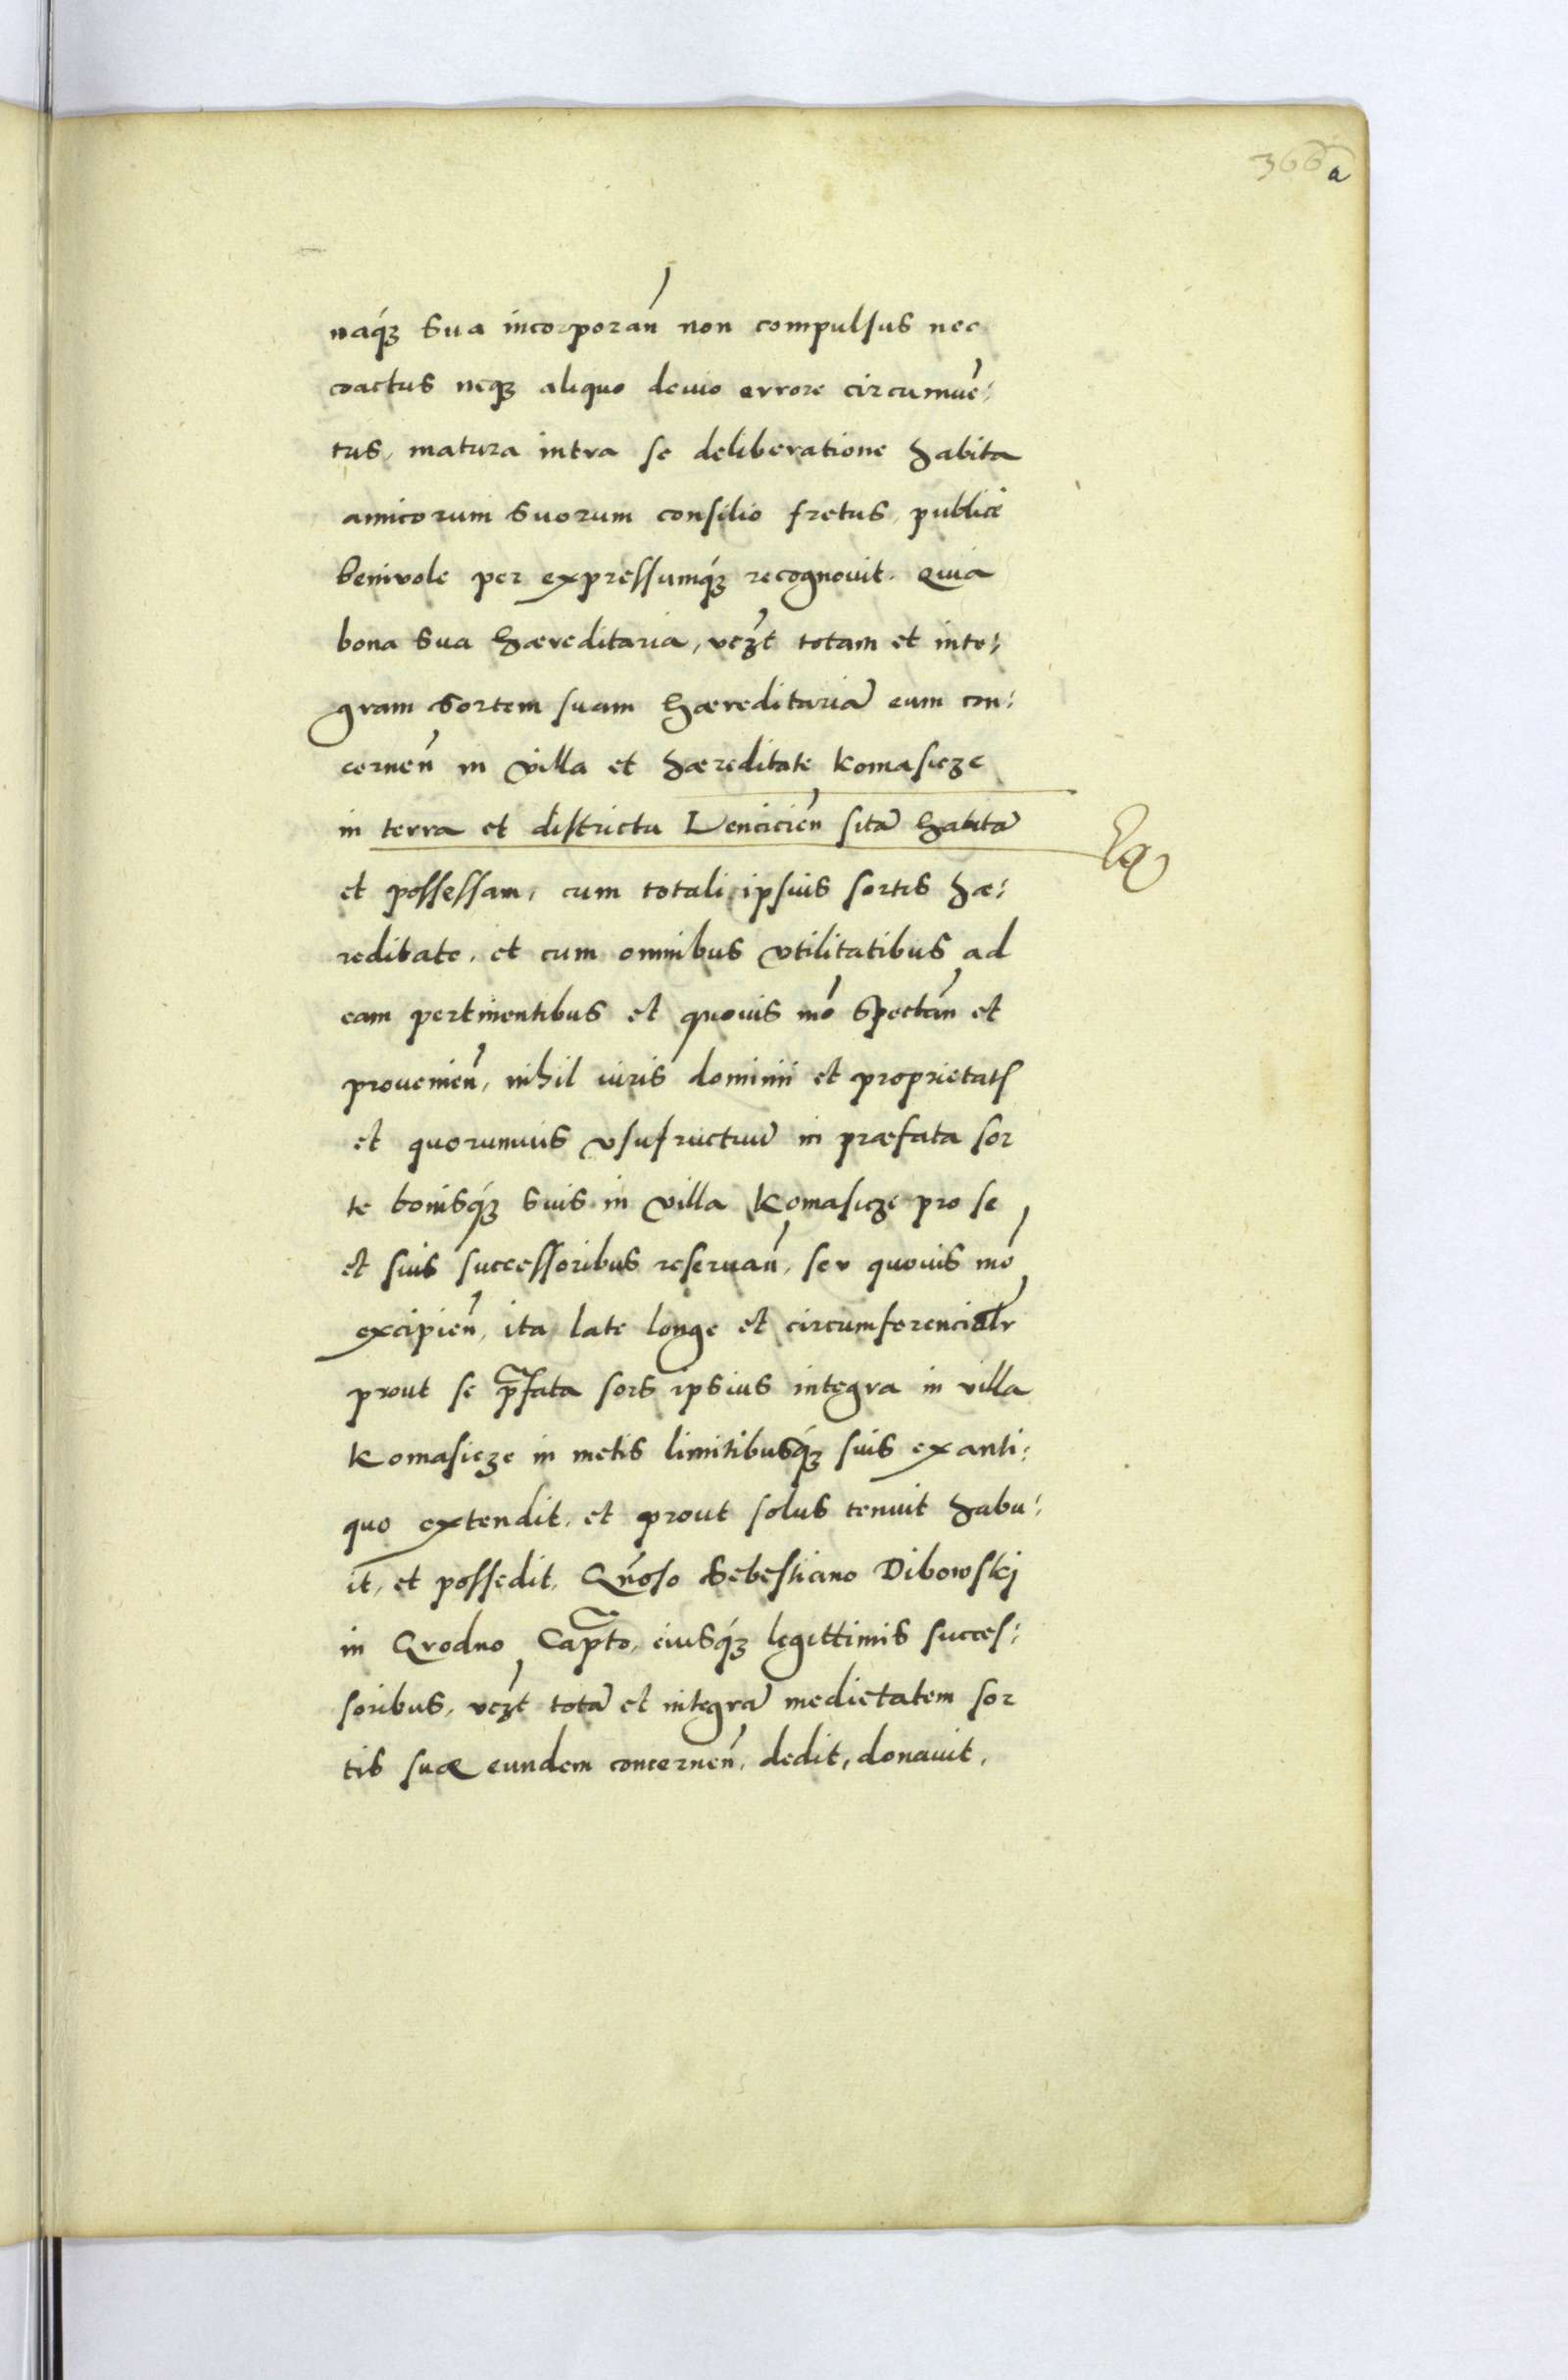 366 a
naq́ꝫ sua incorporań non compulsus nec
coactus neqꝫ aliquo deuio errore circumuē:
tus, matura intra se deliberatione habita
amicorum suorum consilio fretus, publice
benivole per expressumq́ꝫ recognouit. Quia
bona sua hæreditaria, vcꝫt totam et inte:
gram sortem suam hæreditariā eum con:
cerneń in villa et hæreditate Komasicze
in terra et districtu Lencicień sitā habitā
et possessam, cum totali ipsius sortis hæ:
reditate, et cum omnibus vtilitatibus ad
eam pertinentibus et quouis mō spectań et
prouenień, nihil iuris dominii et proprietatꝭ
et quorumuis vsufructuū in præfata sor
te bonisq́ꝫ suis in villa Komasicze pro se
et suis successoribus reseruań, seu quouis mō
excipień, ita late longe et circumferencialr̄
prout se p̄fata sors ipsius integra in villa
Komasicze in metis limitibusq́ꝫ suis ex anti:
quo extendit, et prout solus tenuit habu:
it, et possedit, Gn̄oso Sebestiano Dibowskj
in Grodno Cap̄to, eiusq́ꝫ legittimis succes:
soribus, vcꝫt totā et integrā medietatem sor
tis suæ eundem concerneń, dedit, donauit,